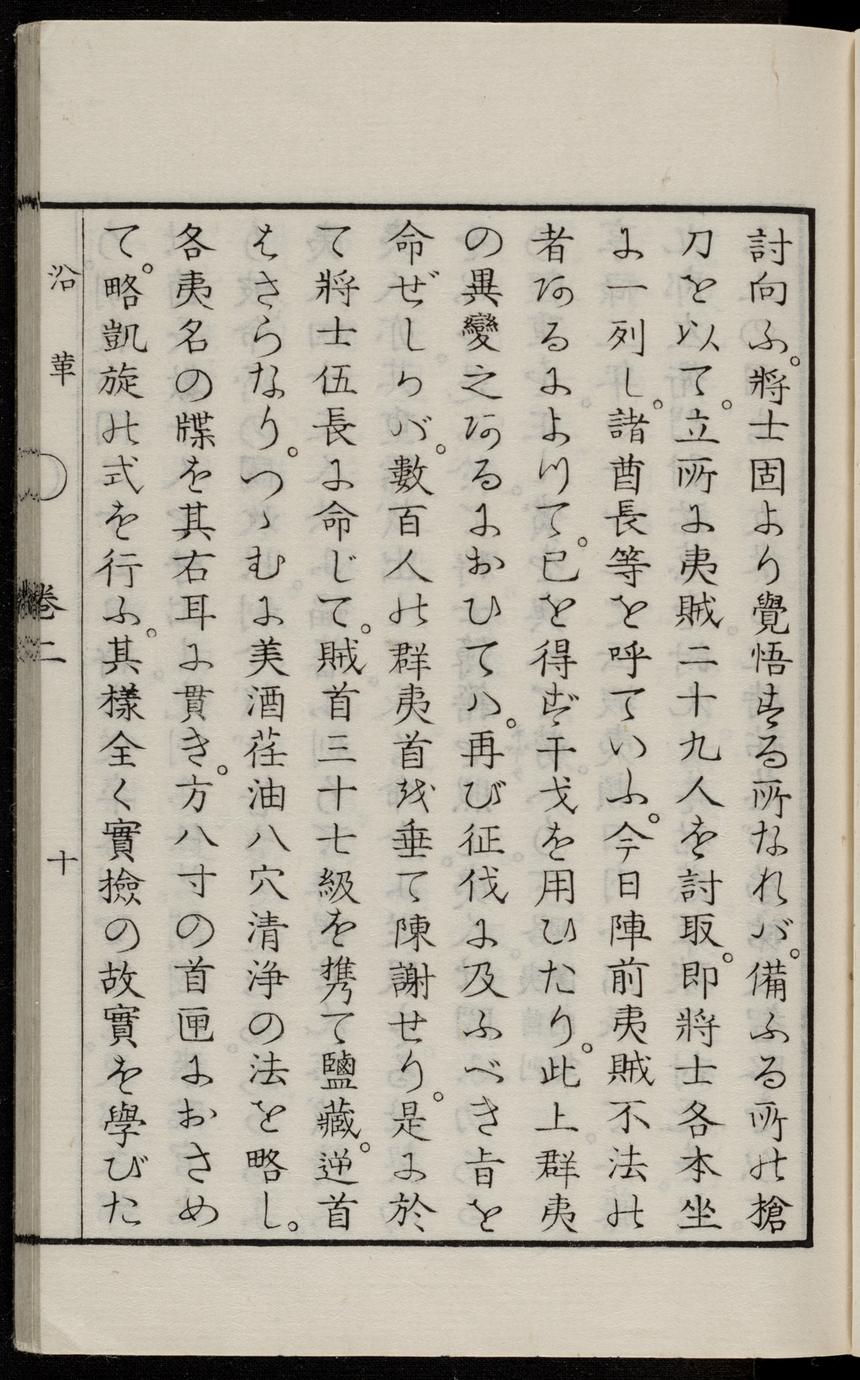 討向ふ。將士固より覺悟する所なれバ。備ふる所の槍
刀を以て。立所に夷賊二十九人を討取。即將士各本坐
に一列し。諸酋長等を呼ていふ。今日陣前夷賊不法の
者あるによりて。已を得ず干戈を用ひたり。此上群夷
の異變之あるにおひてハ。再び征伐に及ふべき旨を
命ぜしらバ。數百人の群夷首を垂て陳謝せり。是に於
て將士伍長に命じて。賊首三十七級を携て鹽藏。逆首
はさらなり。つゝむに美酒荏油八穴清浄の法を略し。
各夷名の牒を其右耳に貫き。方八寸の首匣におさめ
て。略凱旋の式を行ふ。其樣全く實撿の故實を學びた
沿革
卷二
十